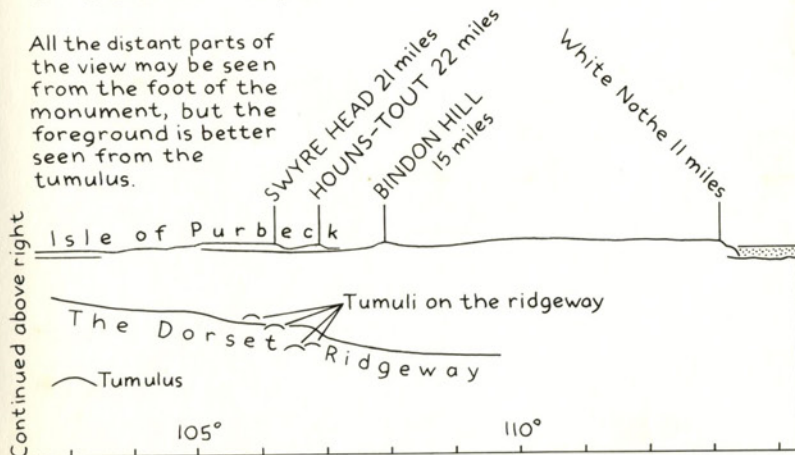 All the distant parts of
the view may be seen
from the foot of the
monument, but the
foreground is better
seen from the
tumulus.
SWYRE HEAD 21 miles
HOUNS-TOUT 22 miles
BINDON HILL
15 miles
White Nothe 11 miles
Continued above right
Isle of Purbeck
Tumuli on the ridgeway
The Dorset Ridgeway
Tumulus
105°
110°